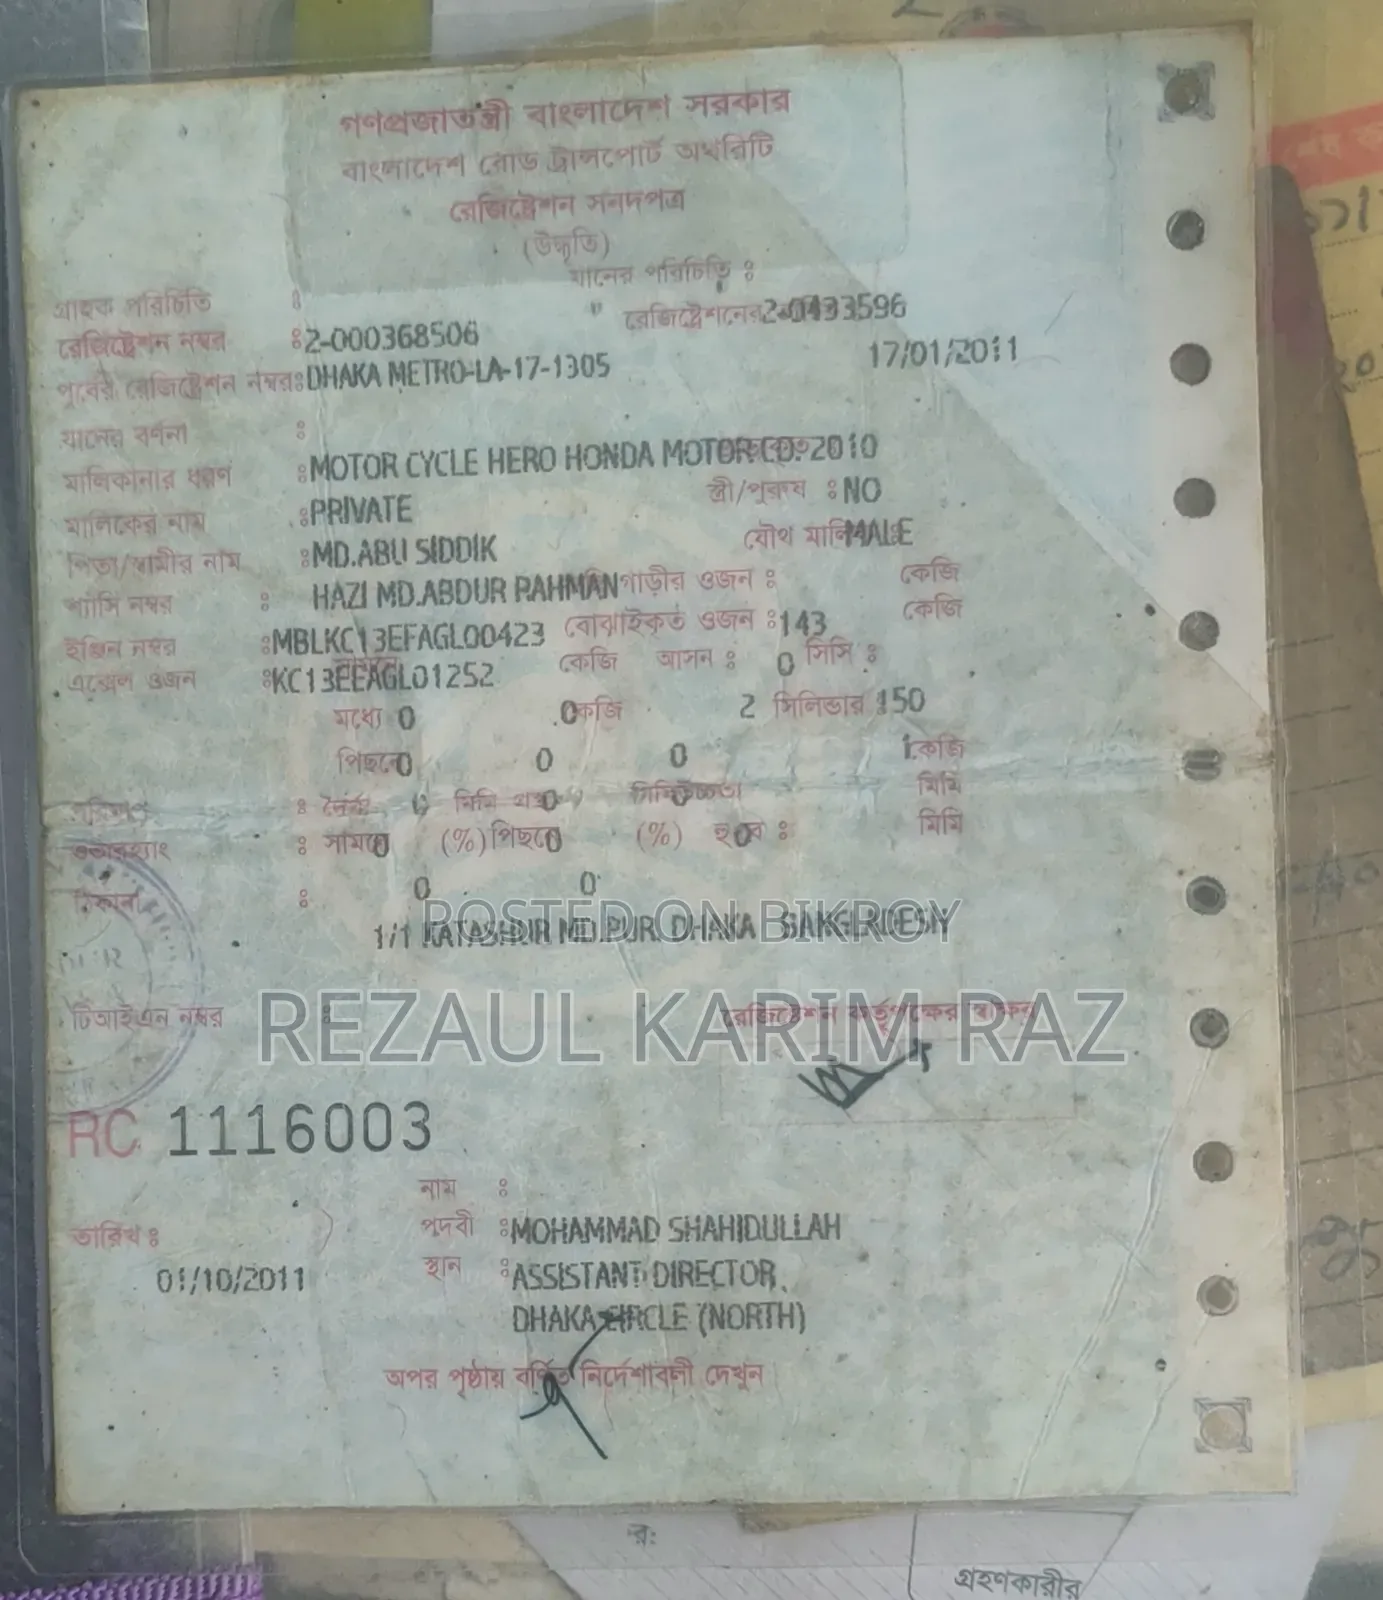 গণপ্রজাতন্ত্রী বাংলাদেশ সরকার
বাংলাদেশ রোড ট্রান্সপোর্ট অথরিটি
রেজিষ্ট্রেশন সনদপত্র
(উদ্ধৃতি)
যানের পরিচিতি :
গ্রাহক পরিচিতি :
রেজিষ্ট্রেশনের 2-0493596
রেজিষ্ট্রেশন নম্বর :2-000368506
17/01/2011
পূর্বের রেজিষ্ট্রেশন নম্বর:DHAKA METRO-LA-17-1305
যানের বর্ণনা :
মালিকানার ধরণ :MOTOR CYCLE HERO HONDA MOTOR CO. 2010
মালিকের নাম :PRIVATE স্ত্রী/পুরুষ :NO
পিতা/স্বামীর নাম :MD.ABU SIDDIK যৌথ MALE
HAZI MD.ABDUR RAHMAN গাড়ীর ওজন : কেজি
চ্যাসি নম্বর :
ইঞ্জিন নম্বর :MBLKC13EFAGL00423 বোঝাইকৃত ওজন :143 কেজি
এক্সেল ওজন :KC13EEAGL01252 কেজি আসন : 0 সিসি :
মধ্যে 0 0 কেজি 2 সিলিন্ডার 150
পিছনে 0 0 0 1 কেজি
: দৈর্ঘ্য 0 মিমি 0 0 মিমি
ওভারহ্যাং : সামনে 0 (%) পিছনে 0 (%) 0 : মিমি
ঠিকানা : 0 0
1/1 KATASHUR MD.PUR. DHAKA BANGLADESH
POSTED ON BIKROY
REZAUL KARIM RAZ
টিআইএন নম্বর : রেজিষ্ট্রেশন কর্তৃপক্ষের স্বাক্ষর
RC 1116003
নাম :
তারিখ : পদবী :MOHAMMAD SHAHIDULLAH
01/10/2011 স্থান :ASSISTANT DIRECTOR.
DHAKA CIRCLE (NORTH)
অপর পৃষ্ঠায় বর্ণিত নির্দেশাবলী দেখুন
র:
গ্রহণকারীর